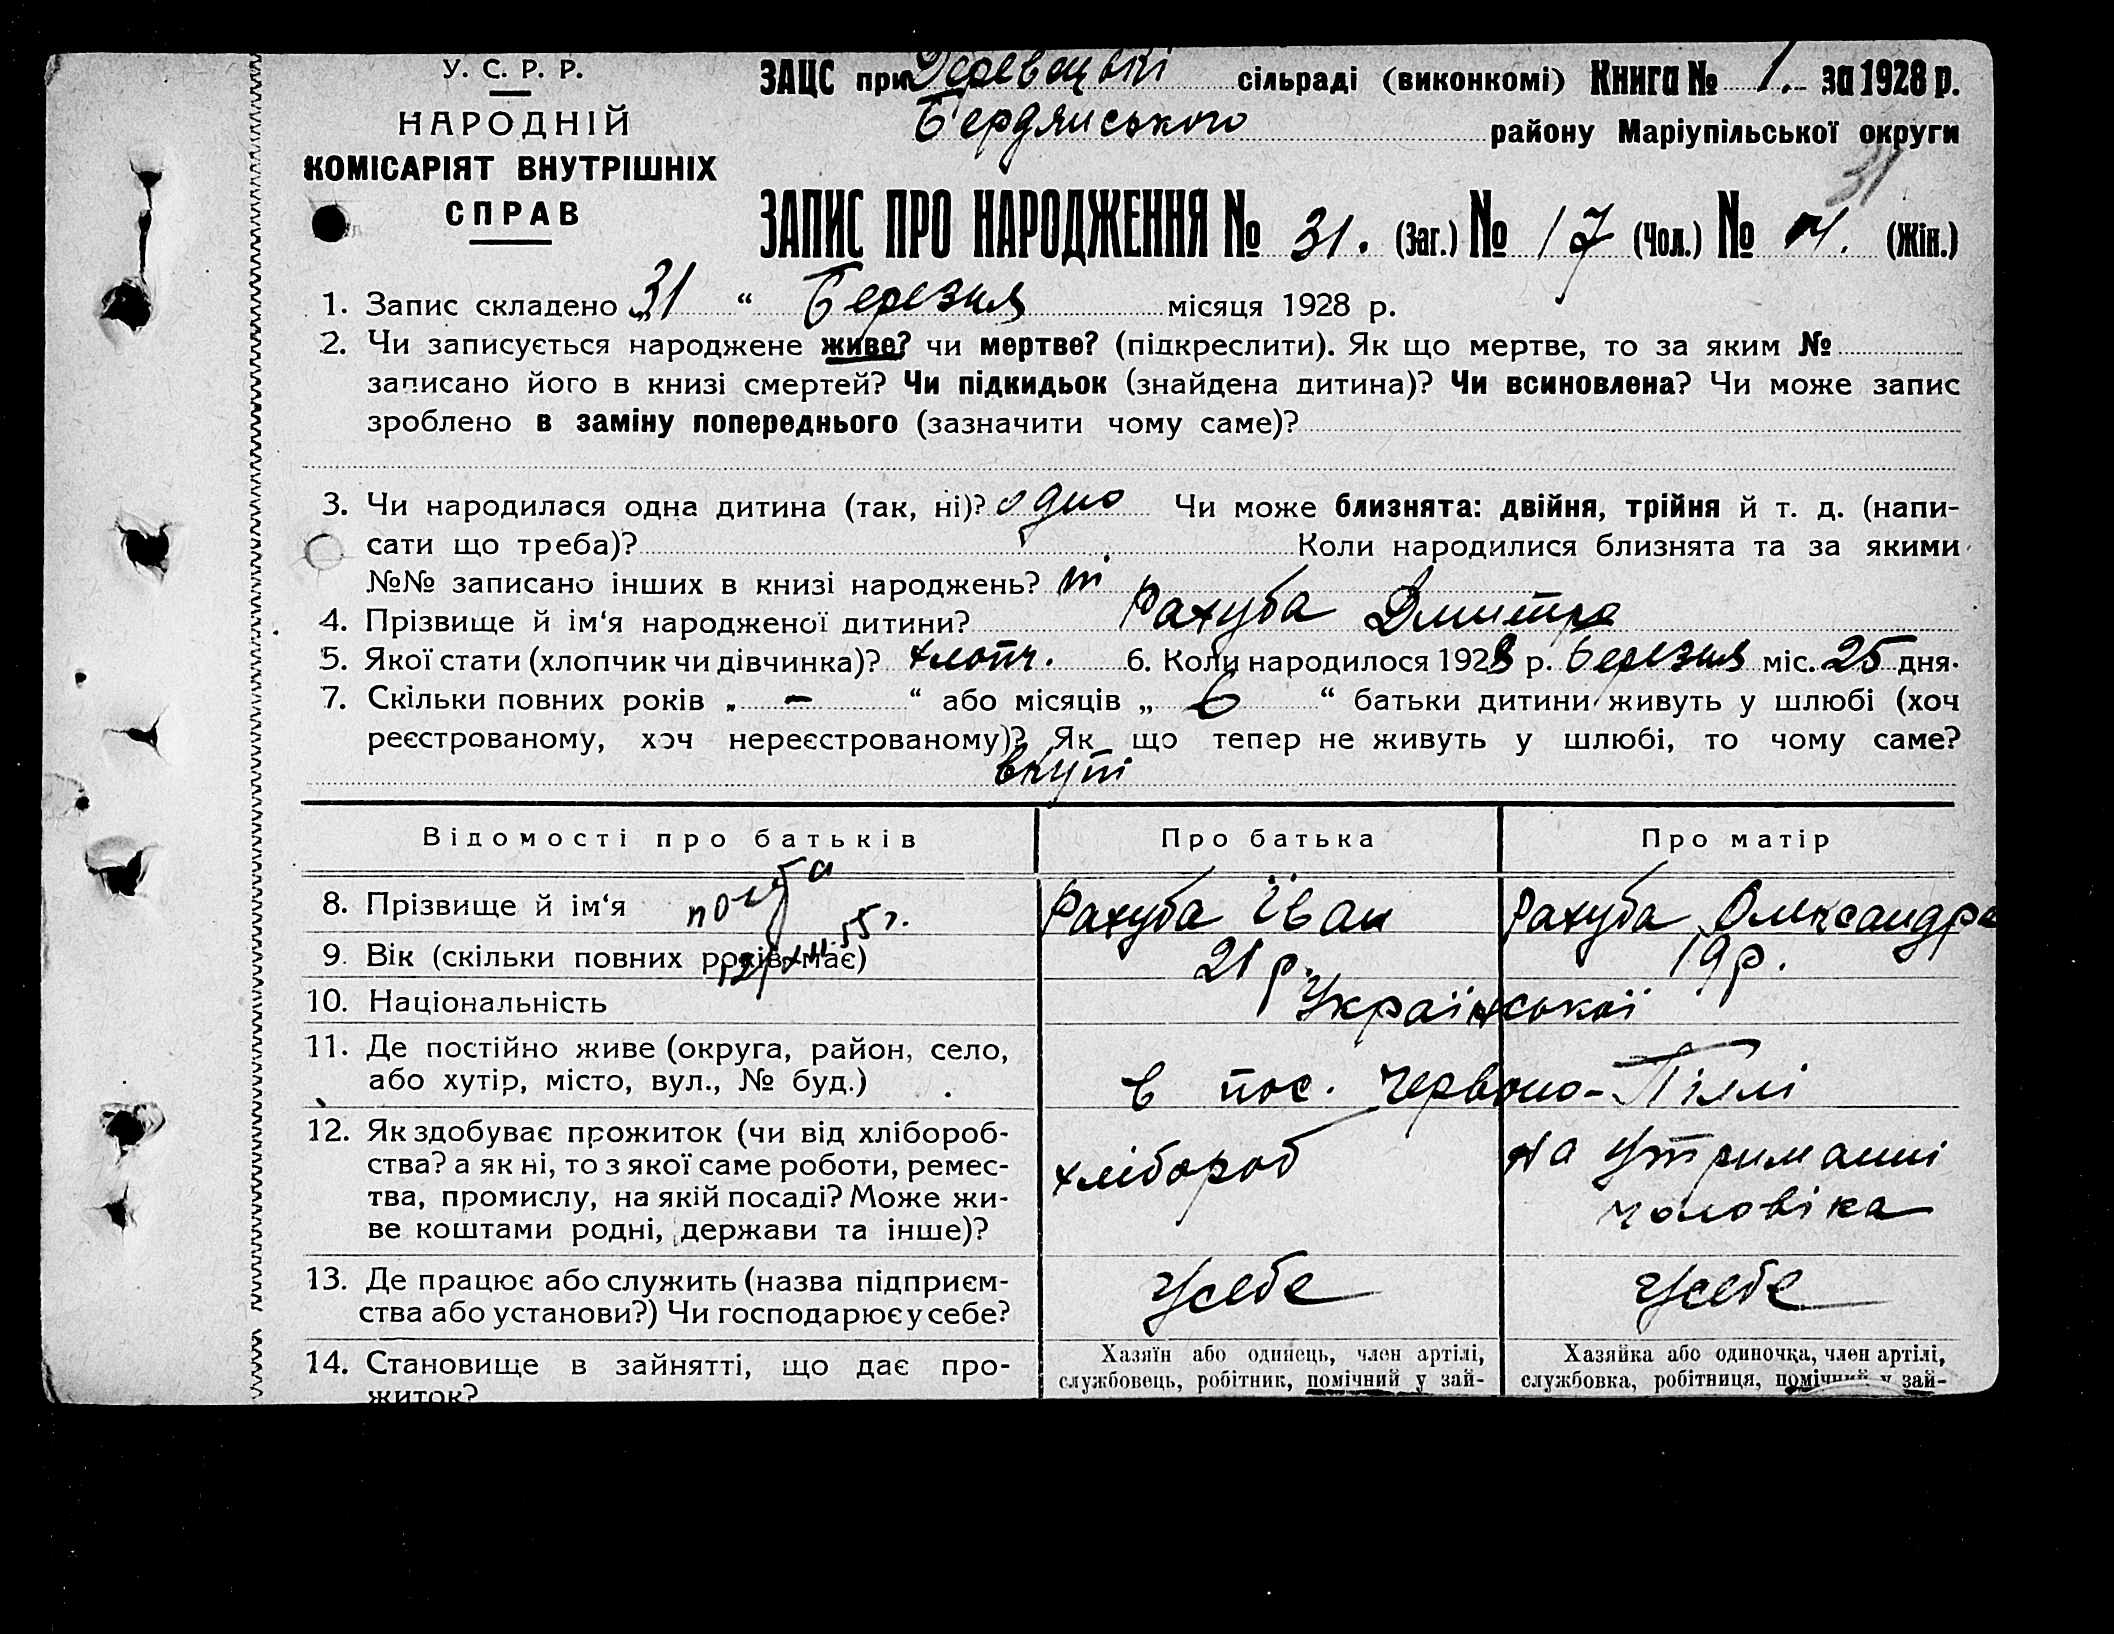 У. С. Р. Р.
НАРОДНІЙ
КОМІСАРІЯТ ВНУТРІШНІХ
СПРАВ
ЗАЦС при сільраді (виконкомі) Книга № 1. за 1928 р.
Бердянського району Маріупільської округи
31
ЗАПИС ПРО НАРОДЖЕННЯ № 31. (Заг.) № 17 (Чол.) № (Жін.)
1. Запис складено „31“ Березня місяця 1928 р.
2. Чи записується народжене живе? чи мертве? (підкреслити). Як що мертве, то за яким №
записано його в книзі смертей? Чи підкидьок (знайдена дитина)? Чи всиновлена? Чи може запис
зроблено в заміну попереднього (зазначити чому саме)?
3. Чи народилася одна дитина (так, ні)? одно Чи може близнята: двійня, трійня й т. д. (напи-
сати що треба)? Коли народилися близнята та за якими
№№ записано інших в книзі народжень? ні
4. Прізвище й ім‘я народженої дитини? Рахуба Дмитро
5. Якої стати (хлопчик чи дівчинка)? хлопч. 6. Коли народилося 1928 р. березня міс. 25 дня.
7. Скільки повних років „ – “ або місяців „ 6 “ батьки дитини живуть у шлюбі (хоч
реєстрованому, хоч нереєстрованому)? Як що тепер не живуть у шлюбі, то чому саме?
вкупі
Відомості про батьків Про батька Про матір
8. Прізвище й ім‘я Рахуба Іван Рахуба Олександра
55 г.
9. Вік (скільки повних років має) 21 р. 19 р.
10. Національність Української
11. Де постійно живе (округа, район, село,
або хутір, місто, вул., № буд.) в пос. Червоно-Пілля
12. Як здобуває прожиток (чи від хлібороб-
ства? а як ні, то з якої саме роботи, ремес-
тва, промислу, на якій посаді? Може жи-
ве коштами родні, держави та інше)? хлібороб на утриманні
чоловіка
13. Де працює або служить (назва підприєм-
ства або установи?) Чи господарює у себе? Усебе Усебе
14. Становище в зайнятті, що дає про-
житок?
Хазяїн або одинець, член артілі,
службовець, робітник, помічний у зай-
Хазяйка або одиночка, член артілі,
службовка, робітниця, помічний у зай-